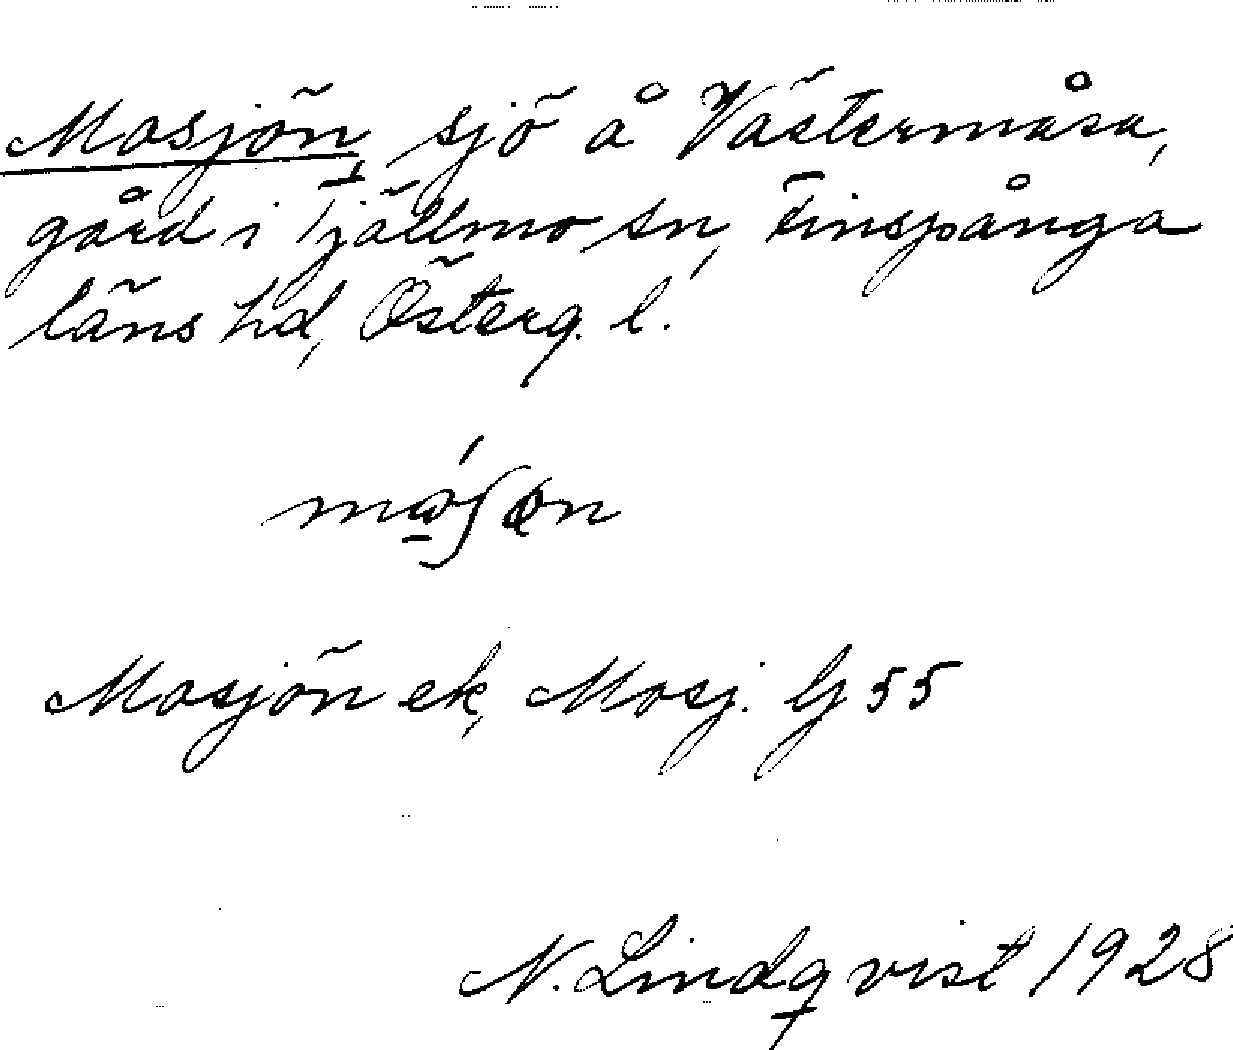 Mosjön, sjö å Västermåsa,
gård i Tjällmo sn, Finspånga
läns hd, Österg. l.
Mosjön ek, Mosj. Gj 55
N. Lindqvist 1928